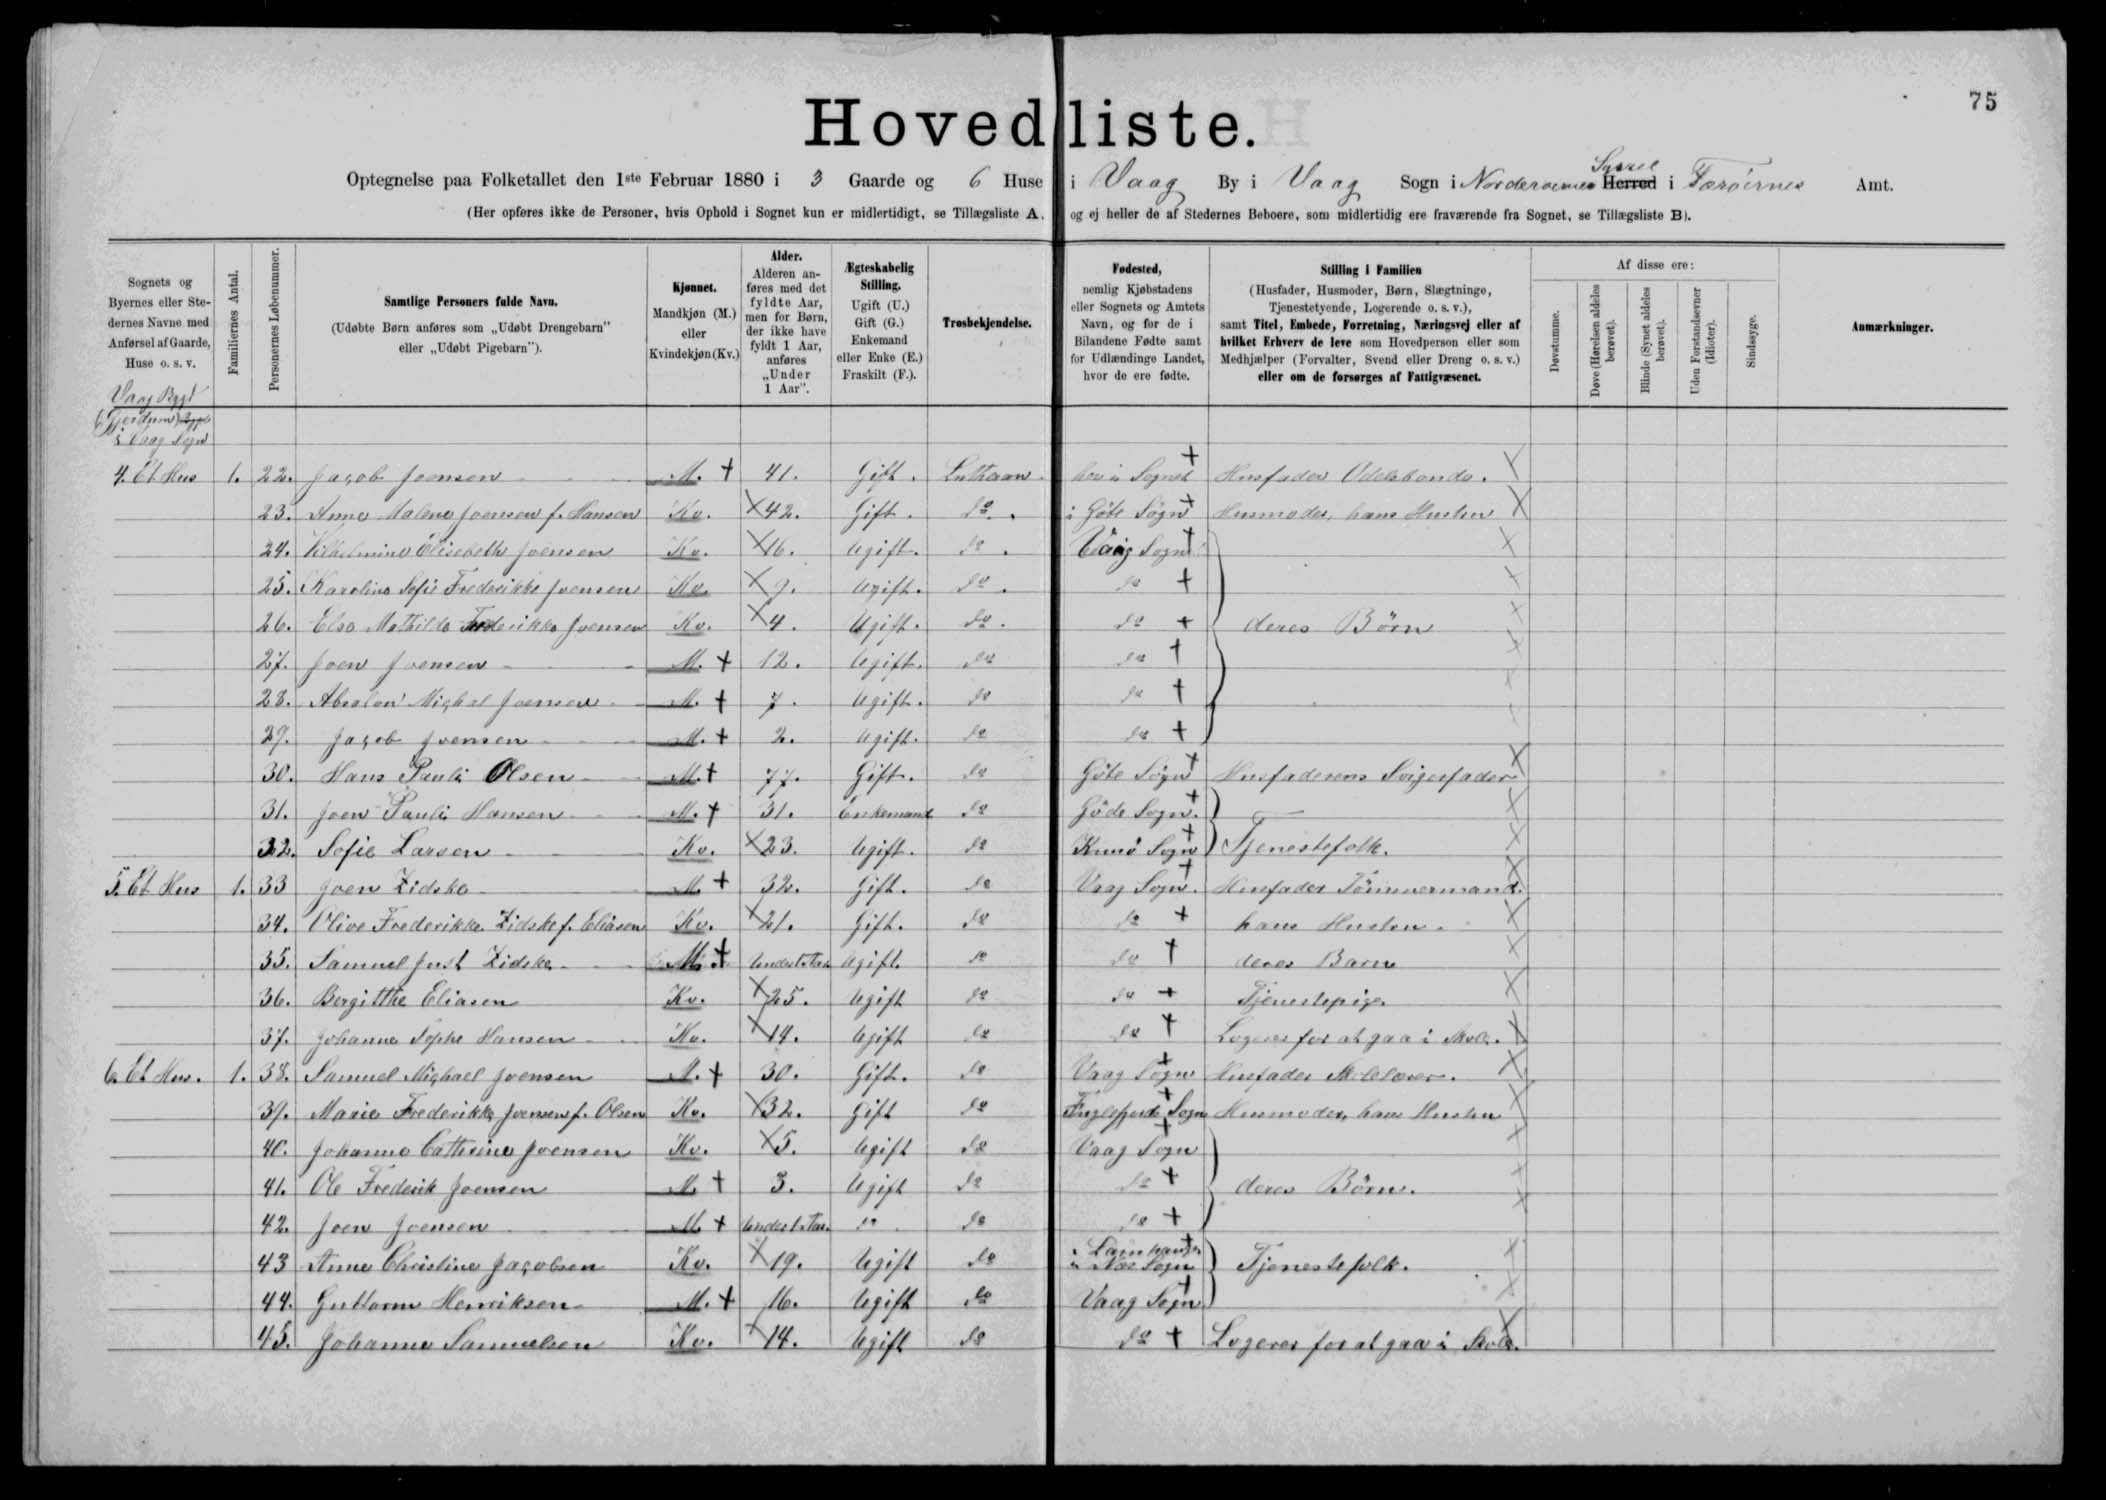 75
Hovedliste.
Optegnelse paa Folketallet den 1ste Februar 1880 i 3 Gaarde og 6 Huse i Vaag By i Vaag Sogn i Norderøernes Herred Syssel i Færöernes Amt.
(Her opføres ikke de Personer, hvis Ophold i Sognet kun er midlertidigt, se Tillægsliste A, og ej heller de af Stedernes Beboere, som midlertidig ere fraværende fra Sognet, se Tillægsliste B).
Sognets og Byernes eller Stedernes Navne med Anførsel af Gaarde, Huse o. s. v.
Familiernes Antal.
Personernes Løbenummer.
Samtlige Personers fulde Navn. (Udøbte Børn anføres som „Udøbt Drengebarn" eller „Udøbt Pigebarn").
Kjønnet. Mandkjøn (M.) eller Kvindekjøn (Kv.)
Alder. Alderen anføres med det fyldte Aar, men for Børn, der ikke have fyldt 1 Aar, anføres „Under 1 Aar".
Ægteskabelig Stilling. Ugift (U.) Gift (G.) Enkemand eller Enke (E.) Fraskilt (F.).
Trosbekjendelse.
Fødested, nemlig Kjøbstadens eller Sognets og Amtets Navn, og for de i Bilandene Fødte samt for Udlændinge Landet, hvor de ere fødte.
Stilling i Familien (Husfader, Husmoder, Børn, Slægtninge, Tjenestetyende, Logerende o. s. v.), samt Titel, Embede, Forretning, Næringsvej eller af hvilket Erhverv de leve som Hovedperson eller som Medhjælper (Forvalter, Svend eller Dreng o. s. v.) eller om de forsørges af Fattigvæsenet.
Af disse ere:
Døvstumme.
Døve (Hørelsen aldeles berøvet).
Blinde (Synet aldeles berøvet).
Uden Forstandsevner (Idioter).
Sindssyge.
Anmærkninger.
Vaag Bygd
i Vaag Sogn
4. Et Hus 1. 22. Jacob Joensen M. + 41. Gift. Luthersk her i Sognet + Husfader Odelsbonde. X
23. Anne Malene Joensen f. Hansen Kv. X 42. Gift. do. i Göte Sogn + Husmoder, hans Hustru X
24. Vilhelmine Elisebeth Joensen Kv. X 16. Ugift. do. Vaag Sogn + X
25. Karoline Sofie Frederikke Joensen Kv. X 9. Ugift. do. do + X
26. Elsa Mathilde Frederikke Joensen Kv. X 4. Ugift. do. do + deres Börn X
27. Joen Joensen M. + 12. Ugift. do do + X
28. Absalon Michal Joensen M. + 7. Ugift. do do +
29. Jacob Joensen M. + 2. Ugift. do do +
30. Hans Pauli Olsen M. + 77. Gift. do Göte Sogn + Husfaderens Svigerfader X
31. Joen Pauli Hansen M. + 31. Enkemand do Göde Sogn. + X
32. Sofie Larsen Kv. X 23. Ugift. do Kunö Sogn + Tjenestefolk. X
5. Et Hus 1. 33 Joen Zidske M. + 32. Gift. do Vaag Sogn. + Husfader Tömmermand. X
34. Olive Frederikke Zidske f. Eliasen Kv. X 21. Gift. do do + hans Hustru. X
35. Samuel Just Zidske M. + Under 1 Aar Ugift. do do + deres Barn X
36. Birgitthe Eliasen Kv. X 25. Ugift do do + Tjenestepige X
37. Johanne Sophie Hansen Kv. X 14. Ugift do do + Logerer for at gaa i Skole. X
6. Et Hus. 1. 38. Samuel Michael Joensen M. + 30. Gift. do Vaag Sogn + Husfader Skolelærer. X
39. Marie Frederikke Joensen f. Olsen Kv. X 32. Gift do Fuglefjords Sogn + Husmoder, hans Hustru X
40. Johanne Cathrine Joensen Kv. X 5. Ugift do Vaag Sogn + X
41. Ole Frederik Joensen M. + 3. Ugift do do + deres Börn. X
42. Joen Joensen M. + Under 1 Aar. do do do + X
43 Anne Christine Jacobsen Kv. X 19. Ugift do i Næs Sogn + Tjenestefolk. X
44. Guttorm Henriksen M. + 16. Ugift do Vaag Sogn + X
45. Johanne Samuelsen Kv. X 14. Ugift do do + Logerer for at gaa i Skole. X